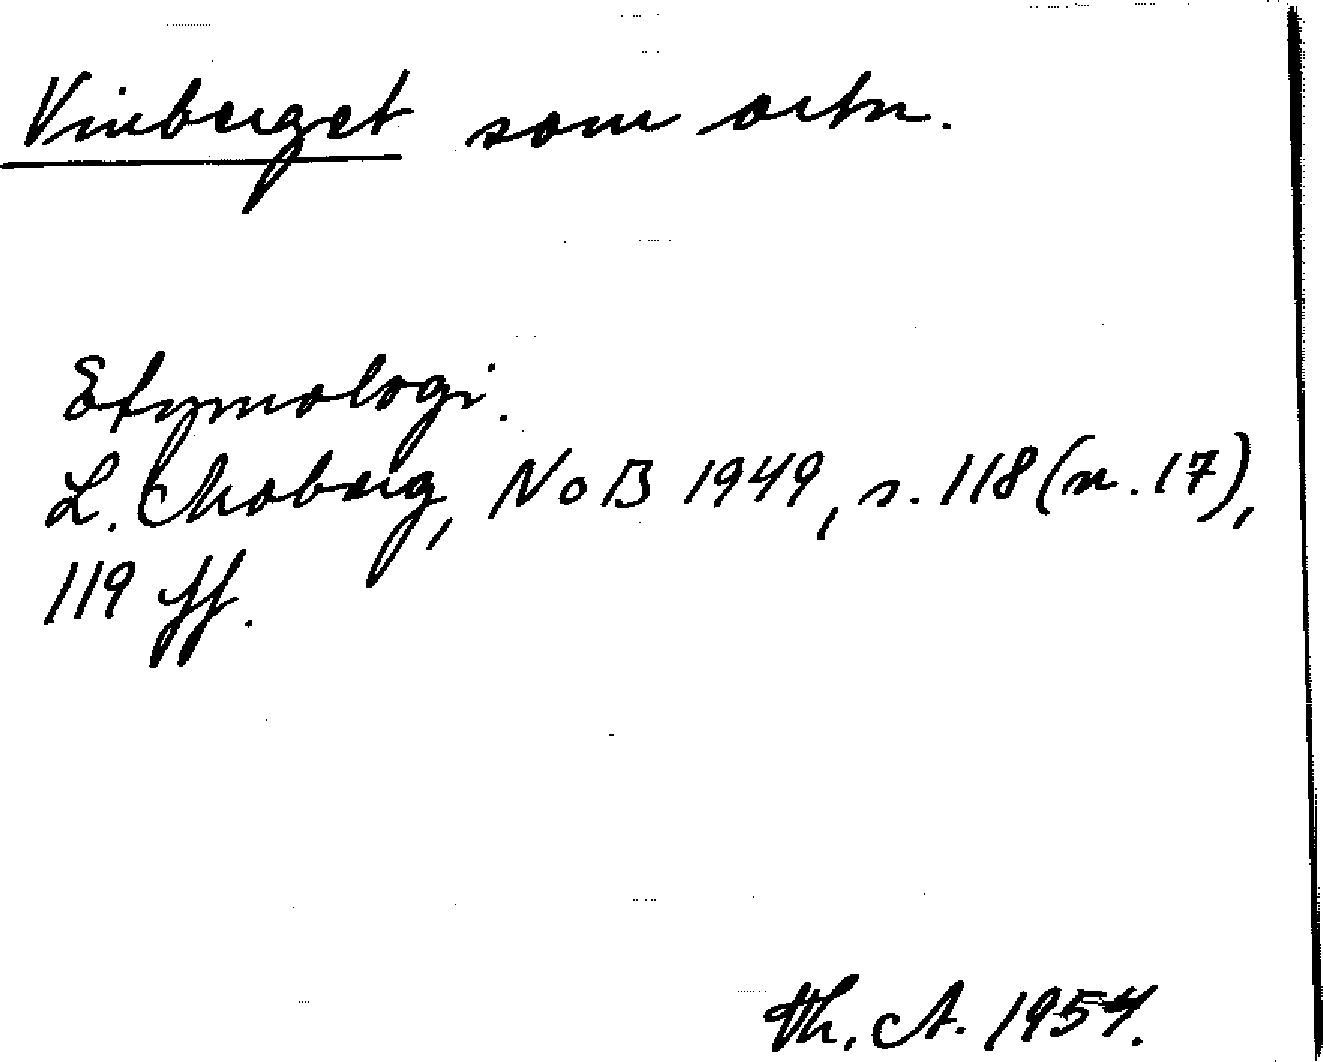 Vinberget som ortn.
Etymologi.
L. Moberg, NoB 1949, s. 118 (n. 17),
119 ff.
Th. A. 1954.